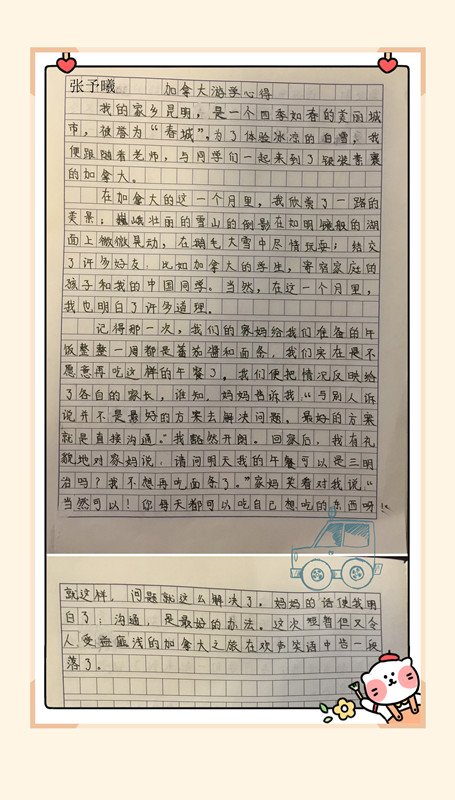 张予曦 加拿大游学心得
我的家乡昆明，是一个四季如春的美丽城
市，被誉为“春城”。为了体验冰凉的白雪，我
便跟随着老师，与同学们一起来到了银装素裹
的加拿大。
在加拿大的这一个月里，我欣赏了一路的
美景；巍峨壮丽的雪山的倒影在如明镜般的湖
面上微微晃动，在鹅毛大雪中尽情玩耍；结交
了许多好友，比如加拿大的学生，寄宿家庭的
孩子和我的中国同学。当然，在这一个月里，
我也明白了许多道理。
记得那一次，我们的寄妈给我们准备的午
饭整整一周都是蕃茄酱和面条，我们实在是不
愿意再吃这样的午餐了。我们便把情况反映给
了各自的家长，谁知，妈妈告诉我“与别人诉
说并不是最好的方案去解决问题，最好的方案
就是直接沟通。”我豁然开朗。回家后，我有礼
貌地对家妈说：请问明天我的午餐可以是三明
治吗？我不想再吃面条了。”家妈笑着对我说“
当然可以！你每天都可以吃自己想吃的东西呀！”
就这样，问题就这么解决了。妈妈的话使我明
白了：沟通，是最好的办法。这次短暂但又令
人受益匪浅的加拿大之旅在欢声笑语中告一段
落了。